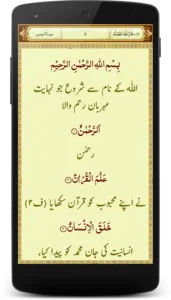 بِسْمِ اللّٰهِ الرَّحْمٰنِ الرَّحِيْمِ
اللہ کے نام سے شروع جو نہایت
مہربان رحم والا
اَلرَّحْمٰنُ ۝١
رحمٰن
عَلَّمَ الْقُرْاٰنَ ۝٢
نے اپنے محبوب کو قرآن سکھایا (ف۲)
خَلَقَ الْاِنْسَانَ ۝٣
انسانیت کی جان محمد کو پیدا کیا،